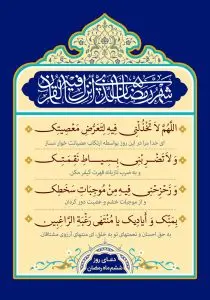 شهر رمضان الذی انزل فیه القرآن
اللَّهُمَّ لاَ تَخْذُلْنِي فِيهِ لِتَعَرُّضِ مَعْصِيَتِكَ
ای خدا مرا در این روز بواسطه ارتکاب عصیانت خوار مساز
وَ لاَ تَضْرِبْنِي بِسِيَاطِ نَقِمَتِكَ
و به ضرب تازیانه قهرت کیفر مکن
وَ زَحْزِحْنِي فِيهِ مِنْ مُوجِبَاتِ سَخَطِكَ
و از موجبات خشم و غضبت دور گردان
بِمَنِّكَ وَ أَيَادِيكَ يَا مُنْتَهَى رَغْبَةِ الرَّاغِبِينَ
به حق احسان و نعمتهای تو به خلق، ای منتهای آرزوی مشتاقان
دعای روز
ششم ماه رمضان